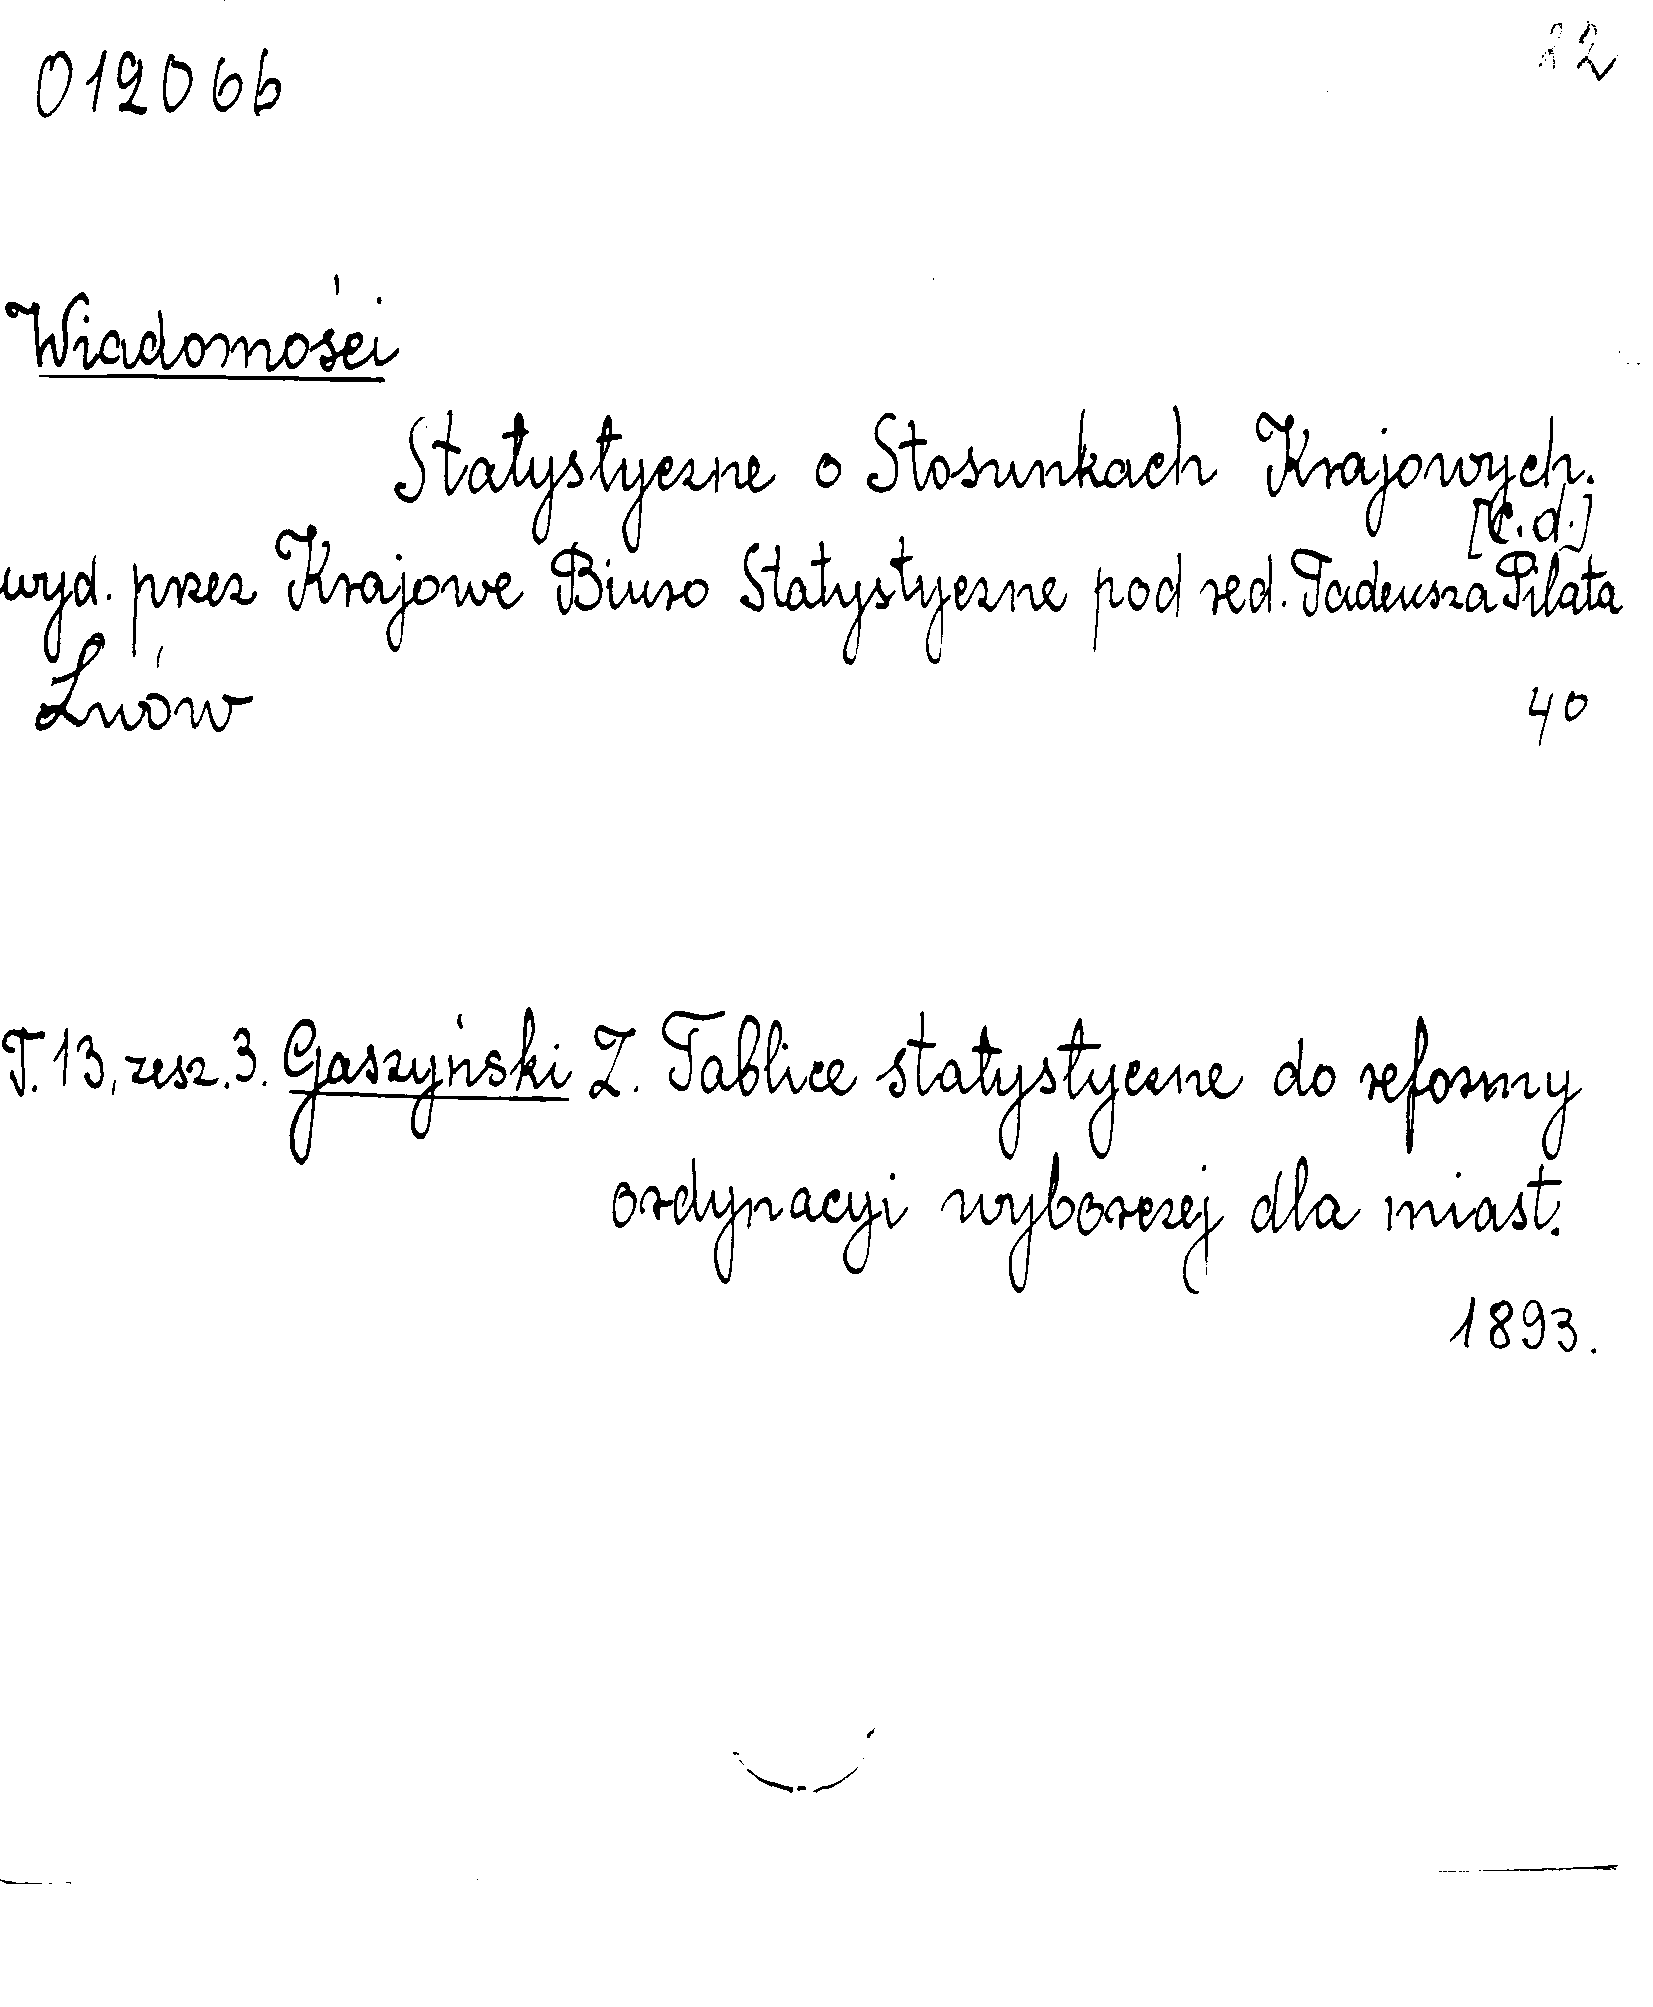 012066
22
Wiadomości
Statystyczne o Stosunkach Krajowych.
[c.d.]
wyd. przez Krajowe Biuro Statystyczne pod red. Tadeusza Pilata
Lwów 40
T. 13, zesz. 3. Gaszyński Z. Tablice statystyczne do reformy
ordynacyi wyborczej dla miast.
1893.